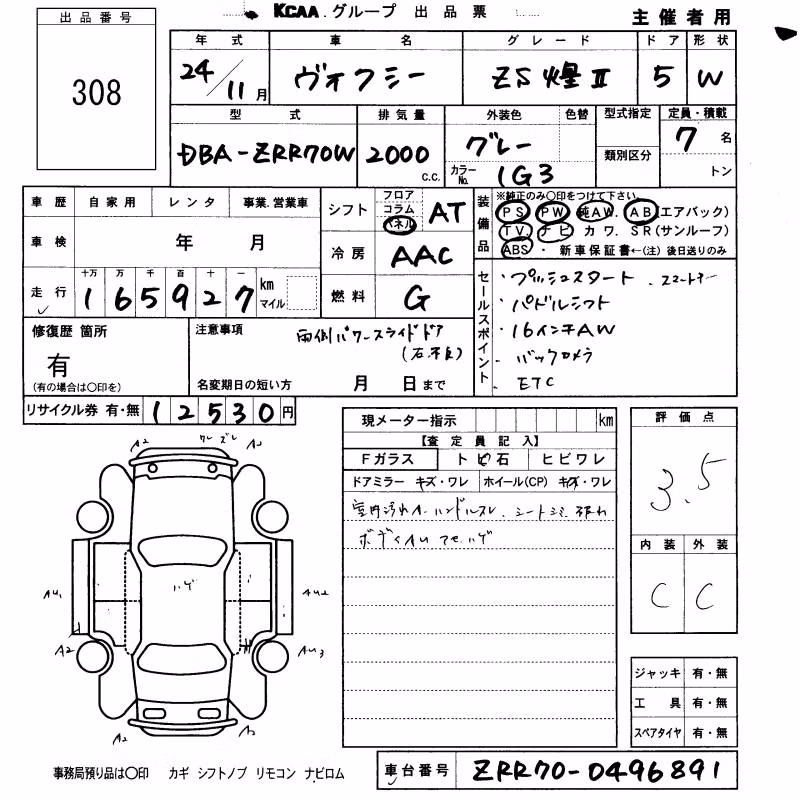 KCAA グループ 出品票
主催者用
出品番号
308
年式 車名 グレード ドア 形状
24/11月 ヴォクシー ZS煌Ⅱ 5 W
型式 排気量 外装色 色替 型式指定 定員・積載
DBA-ZRR70W 2000 c.c. グレー 7名
カラーNo. 1G3 類別区分 トン
車歴 自家用 レンタ 事業.営業車
車検 年 月
走行 十万 万 千 百 十 一
1 6 5 9 2 7 km マイル
シフト フロア コラム パネル AT
冷房 AAC
燃料 G
装備品 ※純正のみ〇印をつけて下さい。
PS PW 純AW. AB(エアバック)
TV. ナビ カワ. SR(サンルーフ)
ABS ・ 新車保証書←(注) 後日送りのみ
セールスポイント
・プッシュスタート .スマートキー
・パドルシフト
・16インチAW
・バックカメラ
・ETC
修復歴 箇所
有
(有の場合は〇印を)
注意事項 両側パワースライドドア
(右不良)
名変期日の短い方 月 日まで
リサイクル券 有・無 12530円
現メーター指示 km
【査定員記入】
Fガラス トビ石 ヒビワレ
ドアミラー キズ・ワレ ホイール(CP) キズ・ワレ
室内汚れ ハンドルスレ シート
ボディAU ハゲ
評価点
3.5
内装 外装
C C
A2 A2
ハゲ
AU1 AU2
A2 AU3
A2 A2
ジャッキ 有・無
工具 有・無
スペアタイヤ 有・無
事務局預り品は〇印 カギ シフトノブ リモコン ナビロム
車台番号 ZRR70-0496891